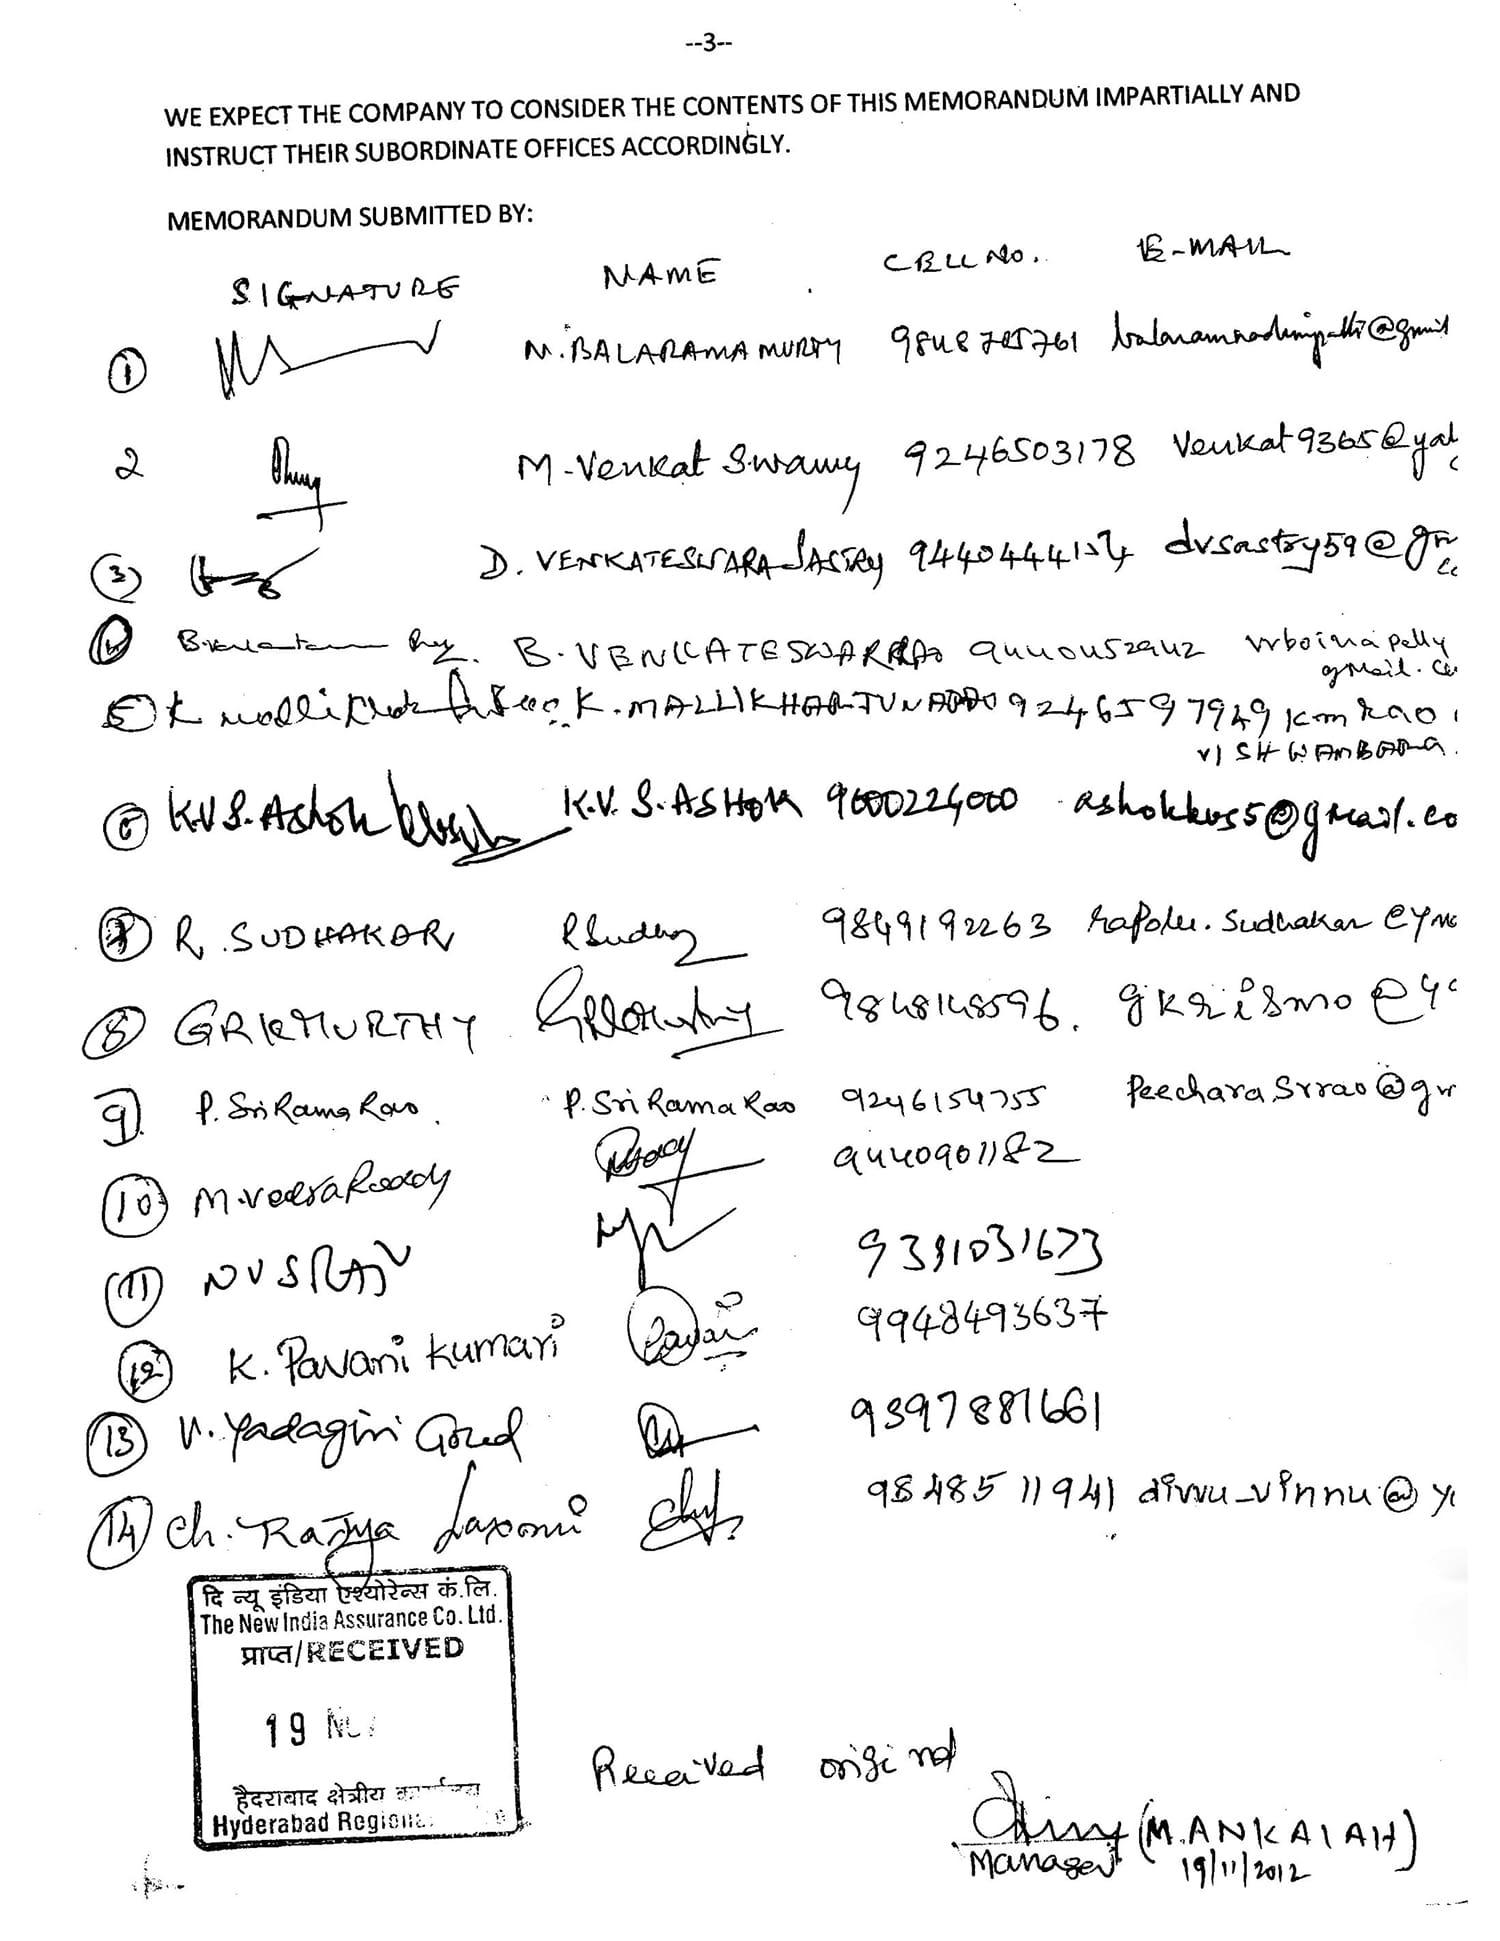 --3--
WE EXPECT THE COMPANY TO CONSIDER THE CONTENTS OF THIS MEMORANDUM IMPARTIALLY AND
INSTRUCT THEIR SUBORDINATE OFFICES ACCORDINGLY.
MEMORANDUM SUBMITTED BY:
SIGNATURE NAME CELL NO. E-MAIL
1 M. BALARAMA MURTY
2 M-Venkat Swamy 9246503178 Venkat9365@yah
3 D. VENKATESWARA SASTRY dvsastry59@gm
B. VENKATESWARRAO 9440452942 vrboinapelly
gmail.co
5 K. MALLIKHARJUNARAO 9246597949 kmrao
VISHWAMBARA.
6 K.V.S. Ashok K.V.S. ASHOK 9600224000 @gmail.co
7 R. SUDHAKAR 9849192263 rapolu.sudhakar@ymc
8 GRKMURTHY 9848148596. gkrismo@yc
9 P. Sri Rama Rao. P. Sri Rama Rao 9246154755 Peechara.Srrao@gm
10 M. Veera Reddy 9440901182
11 NVSRAJU 9391031673
12 K. Pavani Kumari 9948493637
13 V. Yadagiri Goud 9397887661
14 Ch. Rajya Laxmi 9848511941 divvu_vinnu@y
दि न्यू इंडिया एश्योरेन्स कं.लि.
The New India Assurance Co. Ltd.
प्राप्त/RECEIVED
19 NOV
हैदराबाद क्षेत्रीय
Hyderabad Regional
Received original
(M. ANKAIAH)
Manager 19/11/2012